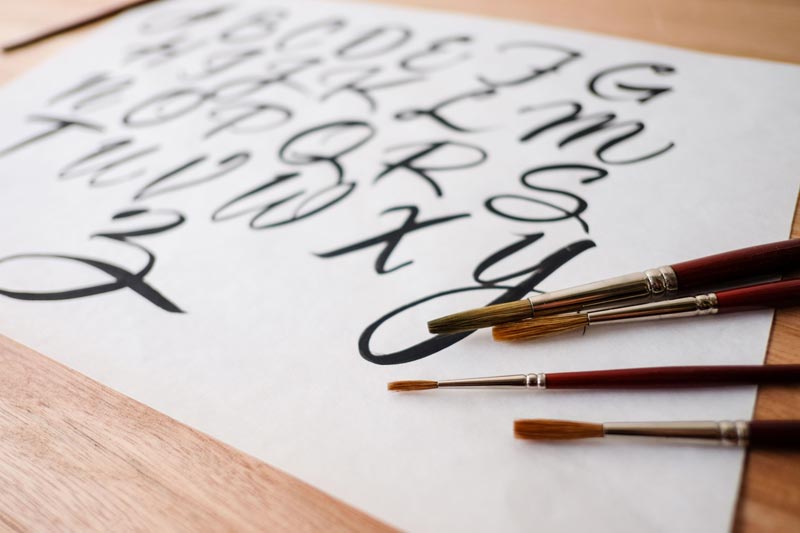 A B C D E F G
H I J K L M
N O P Q R S
T U V W X Y
Z